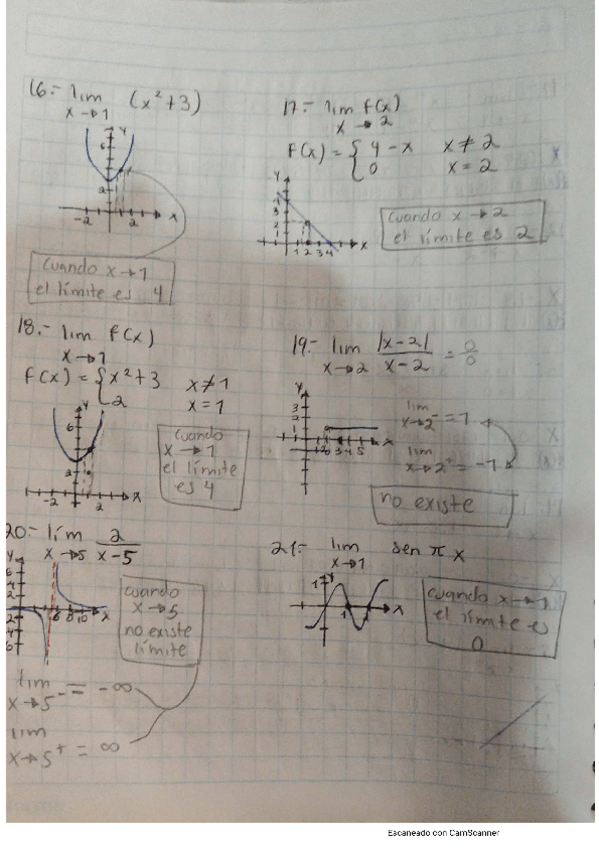 16.- lim (x² + 3)
x → 1
y
6
2
-2 2 x
cuando x → 1
el límite es 4
17.- lim f(x)
x → 2
f(x) = { 4 - x x ≠ 2
0 x = 2
y
3
2
1
1 2 3 4 x
cuando x → 2
el límite es 2
18.- lim f(x)
x → 1
f(x) = { x² + 3 x ≠ 1
2 x = 1
y
6
2
-2 2 x
cuando
x → 1
el límite
es 4
19.- lim |x - 2| / x - 2 = 0/0
x → 2
y
3
2
1
3 4 5 x
lim
x → 2⁻ = 1
lim
x → 2⁺ = -1
no existe
20.- lím 2 / x - 5
x → 5
y
6
4
2
6 8 10 x
2
4
6
cuando
x → 5
no existe
límite
lim
x → 5⁻ = -∞
lim
x → 5⁺ = ∞
21.- lim sen π x
x → 1
1
1 2 x
cuando x → 1
el límite es
0
Escaneado con CamScanner